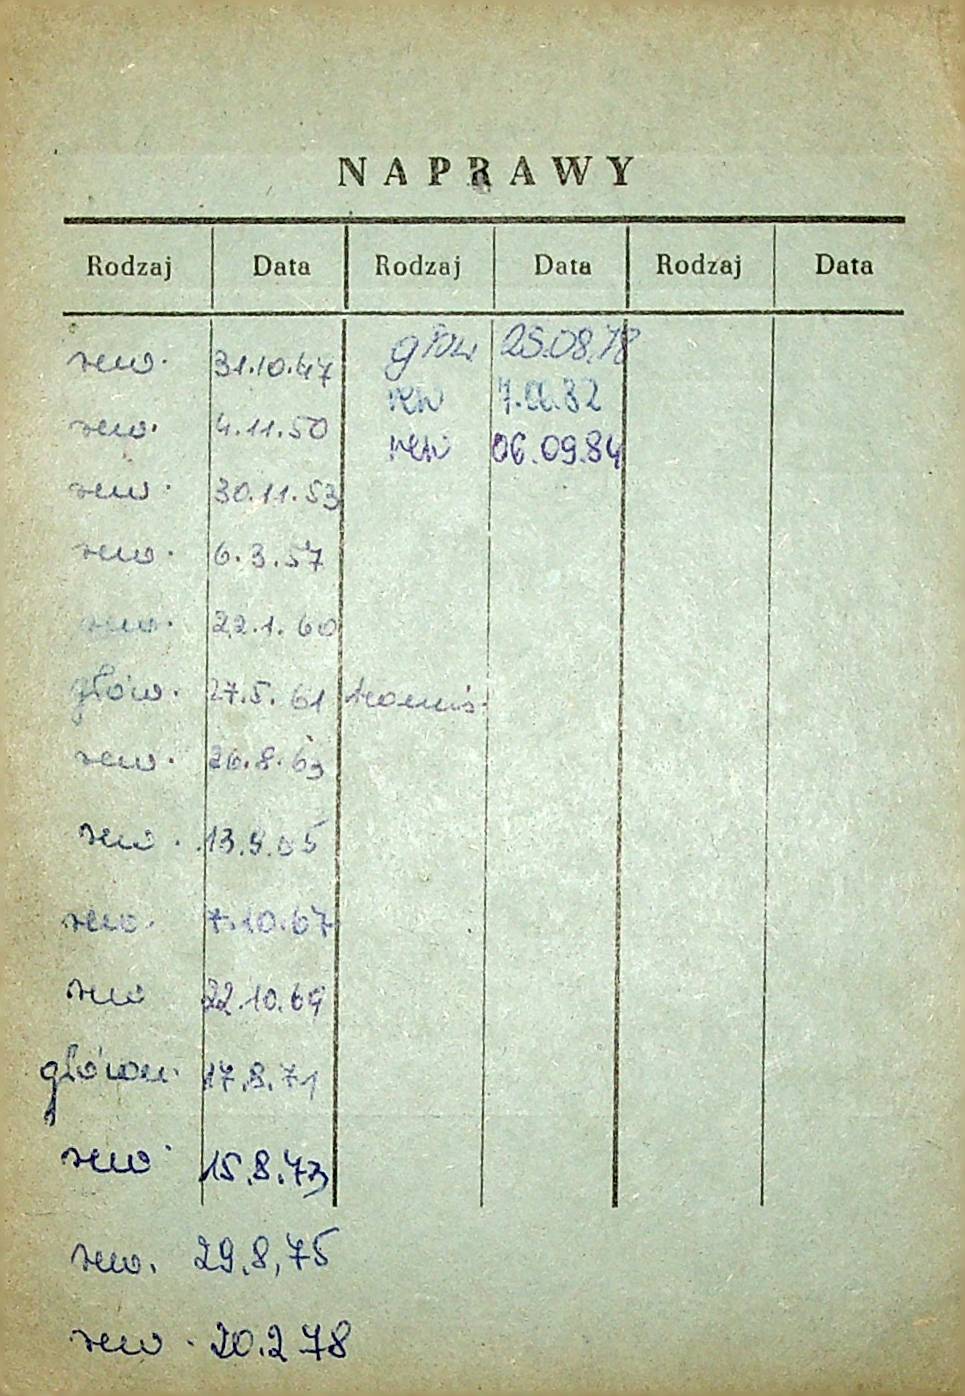 NAPRAWY
Rodzaj Data Rodzaj Data Rodzaj Data
rew. 31.10.47 głów 25.08.78
rew 7.06.82
rew. 4.11.50 rew 06.09.84
rew. 30.11.53
rew. 6.3.57
rew. 22.1.60
głów. 27.5.61
rew. 26.8.63
rew. 13.9.65
rew. 7.10.67
rew 22.10.69
główn. 17.8.71
rew 15.8.73
rew. 29,8,75
rew. 20.2 78